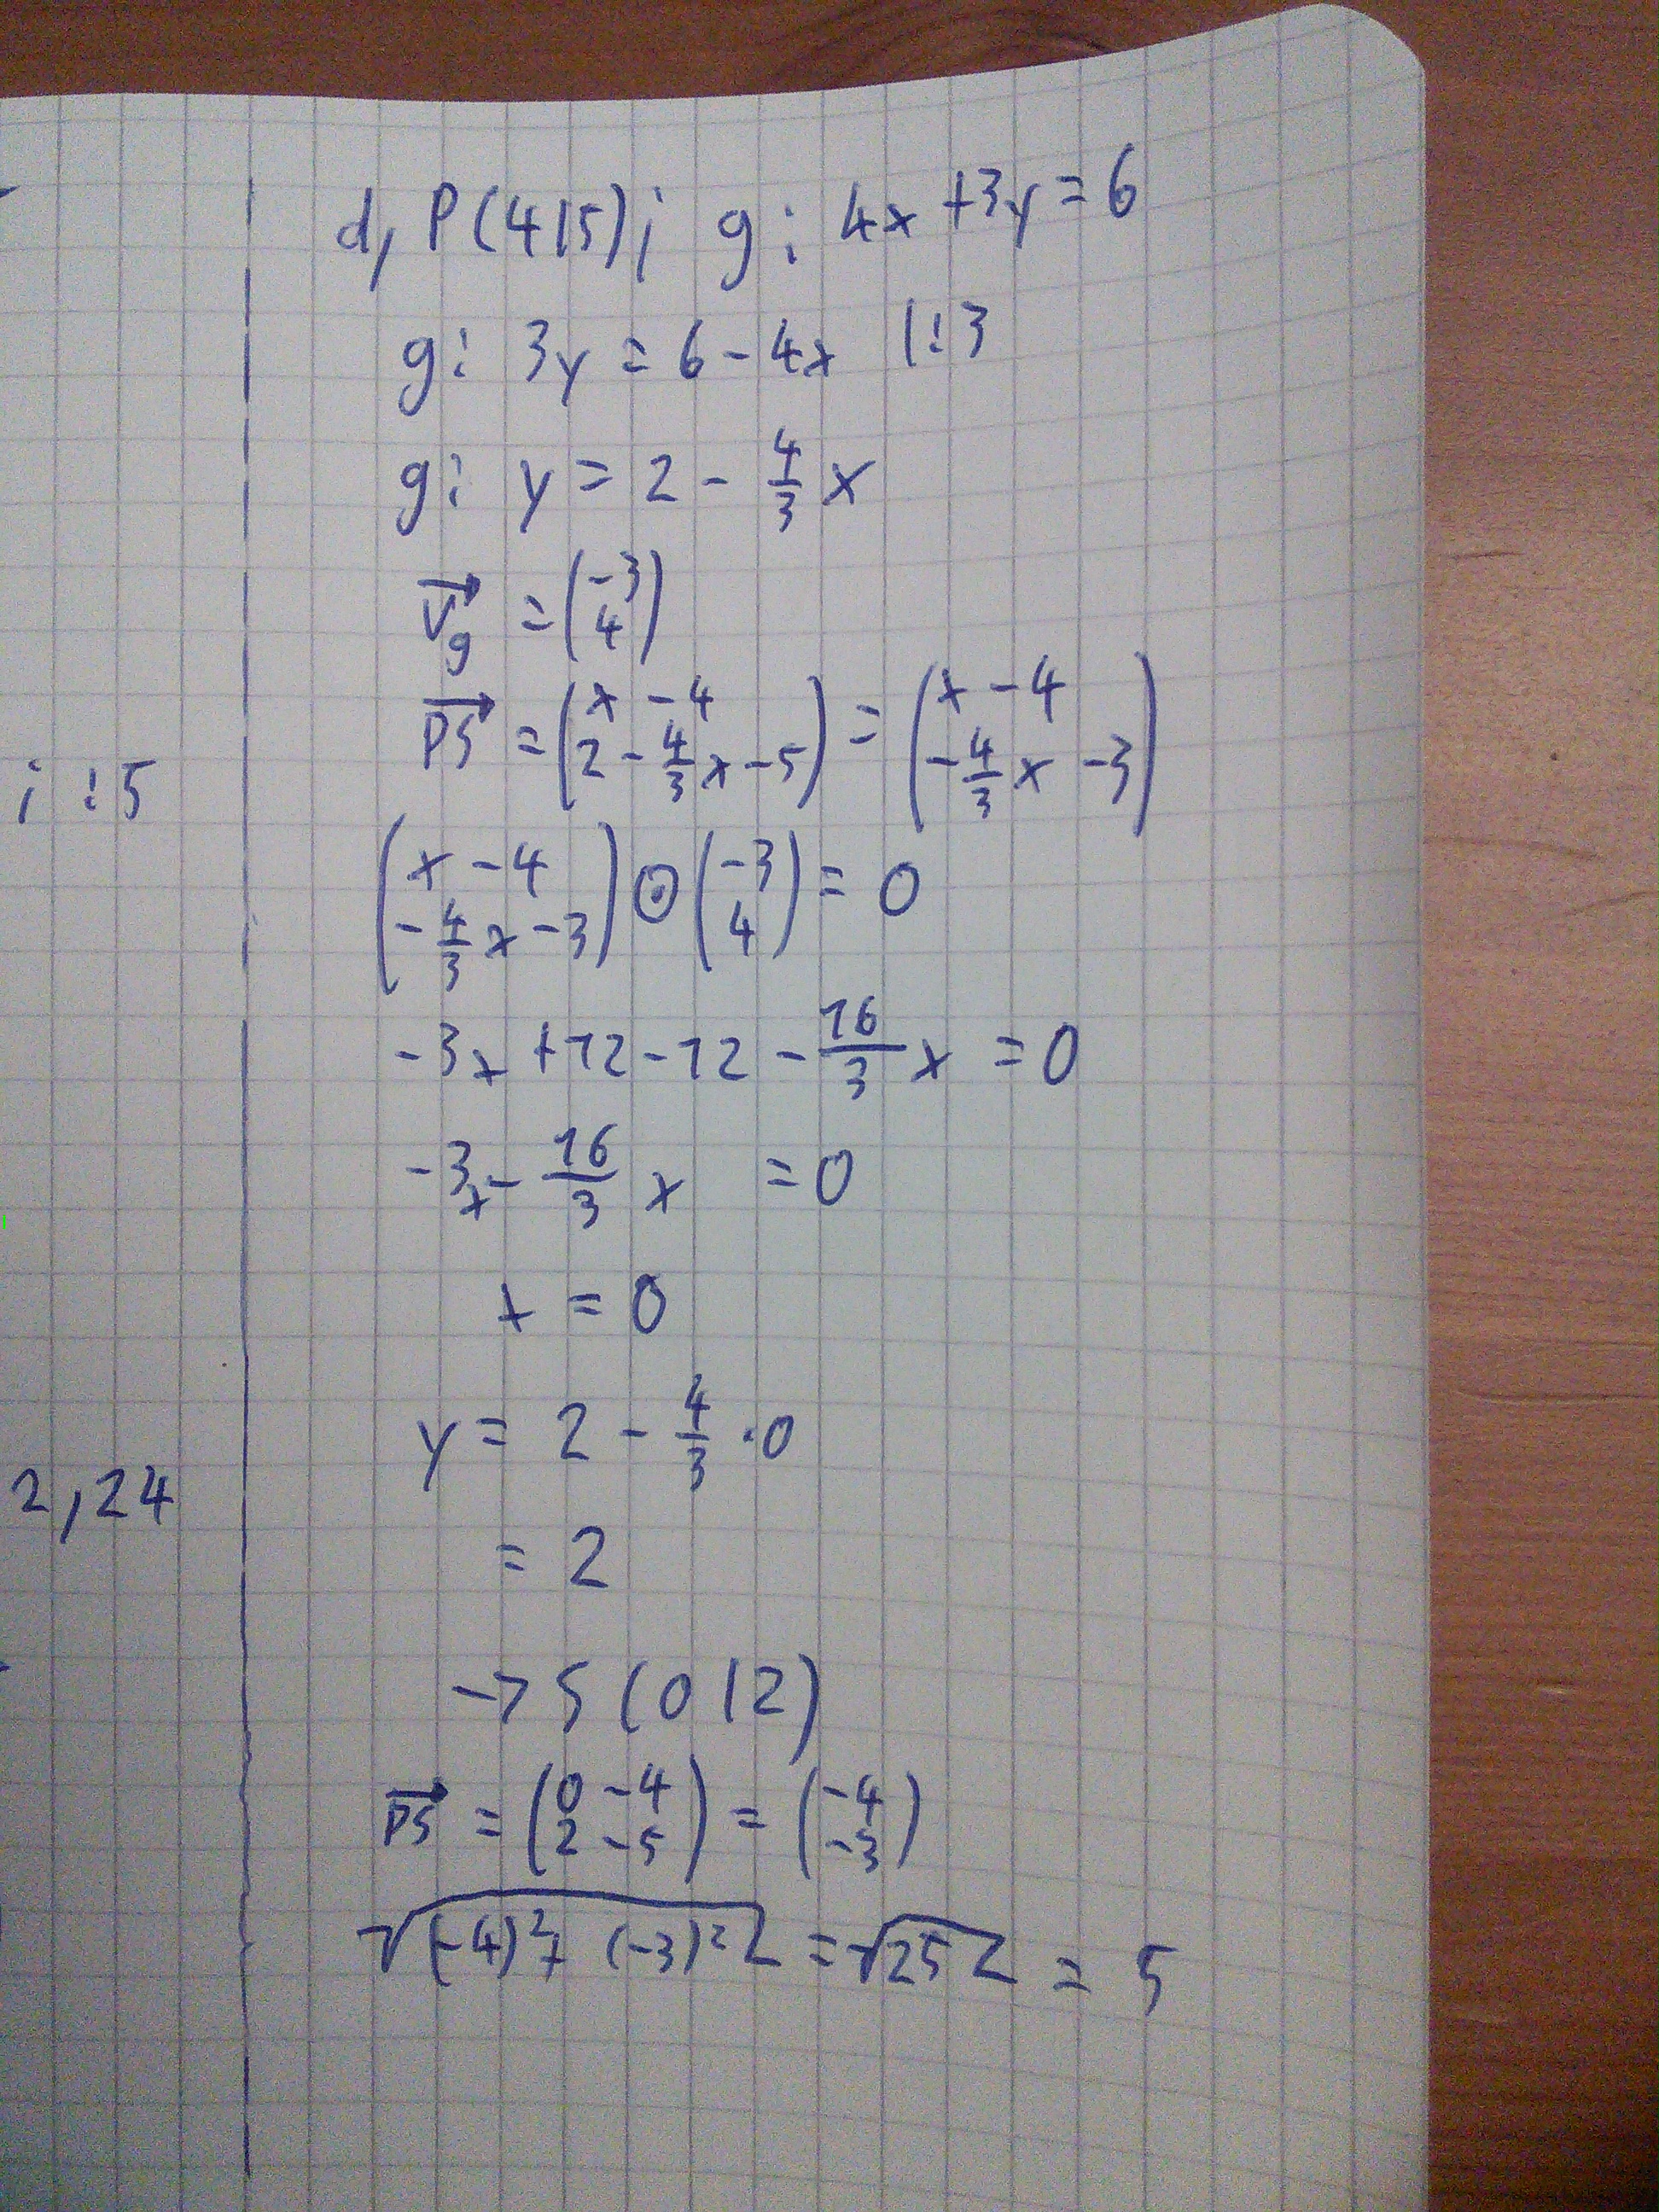 d, P(4|5); g: 4x +3y = 6
g: 3y = 6 - 4x |:3
g: y = 2 - 4/3 x
v⃗g = (-3 4)
PS⃗ = (x - 4 2 - 4/3 x - 5) = (x - 4 -4/3 x - 3)
; :5
(x - 4 -4/3 x - 3) ⊙ (-3 4) = 0
-3x +12 - 12 - 16/3 x = 0
-3x - 16/3 x = 0
x = 0
y = 2 - 4/3 · 0
2,24
= 2
→ S (0|2)
PS⃗ = (0 - 4 2 - 5) = (-4 -3)
√(-4)² + (-3)² = √25 = 5